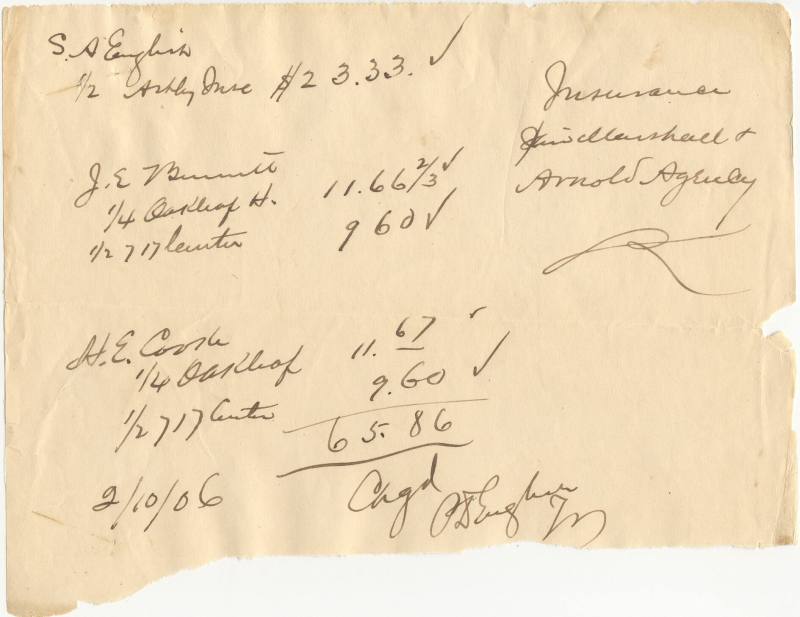 S. A English
1/2 Ashby Inse $23.33. ✓
Insurance
Marshall &
Arnold Agency
J. E Bennett
1/4 Oakleaf H. 11.66 2/3 ✓
1/2 717 Center 960 ✓
H. E. Cook
1/4 Oakleaf 11.67 ✓
1/2 717 Center 9.60 ✓
65.86
2/10/06 Chgd